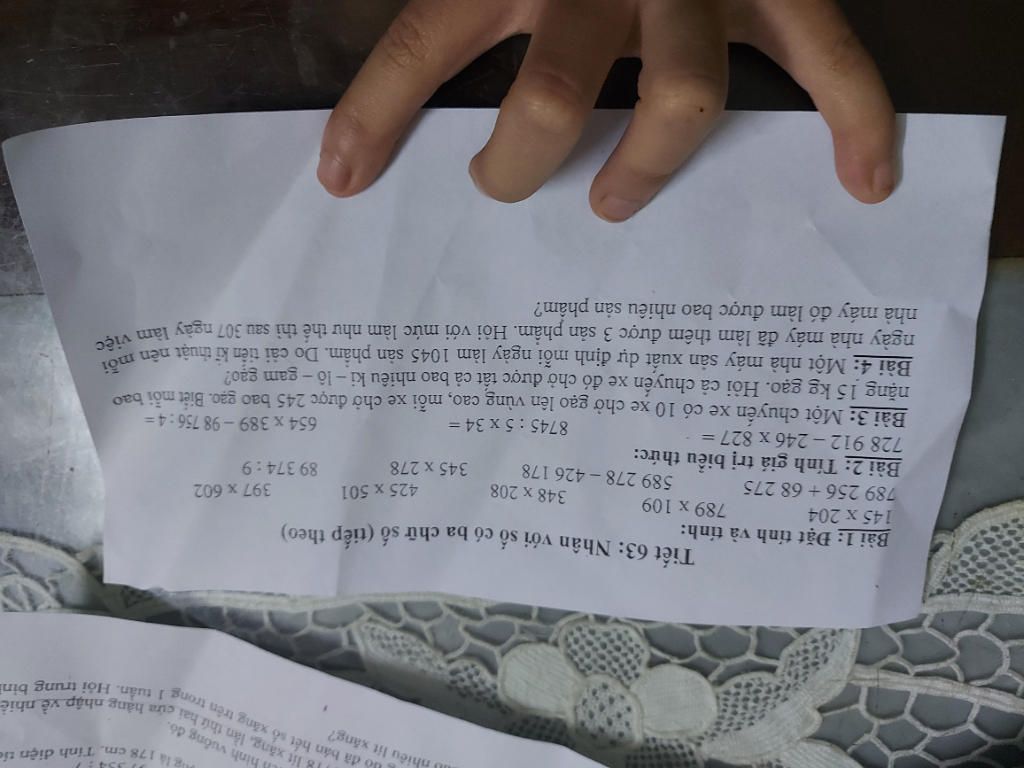 Tiết 63: Nhân với số có ba chữ số (tiếp theo)
Bài 1: Đặt tính và tính:
145 x 204 789 x 109 348 x 208 425 x 501 397 x 602
789 256 + 68 275 589 278 – 426 178 345 x 278 89 374 : 9
Bài 2: Tính giá trị biểu thức:
728 912 – 246 x 827 = 8745 : 5 x 34 = 654 x 389 – 98 756 : 4 =
Bài 3: Một chuyến xe có 10 xe chở gạo lên vùng cao, mỗi xe chở được 245 bao gạo. Biết mỗi bao
nặng 15 kg gạo. Hỏi cả chuyến xe đó chở được tất cả bao nhiêu ki – lô – gam gạo?
Bài 4: Một nhà máy sản xuất dự định mỗi ngày làm 1045 sản phẩm. Do cải tiến kĩ thuật nên mỗi
ngày nhà máy đã làm thêm được 3 sản phẩm. Hỏi với mức làm như thế thì sau 307 ngày làm việc
nhà máy đó làm được bao nhiêu sản phẩm?
là 178 cm. Tính diện
hình vuông đó.
lít xăng, lần thứ hai cửa hàng nhập về
đó đã bán hết số xăng trên trong 1 tuần. Hỏi trung bình
nhiêu lít xăng?